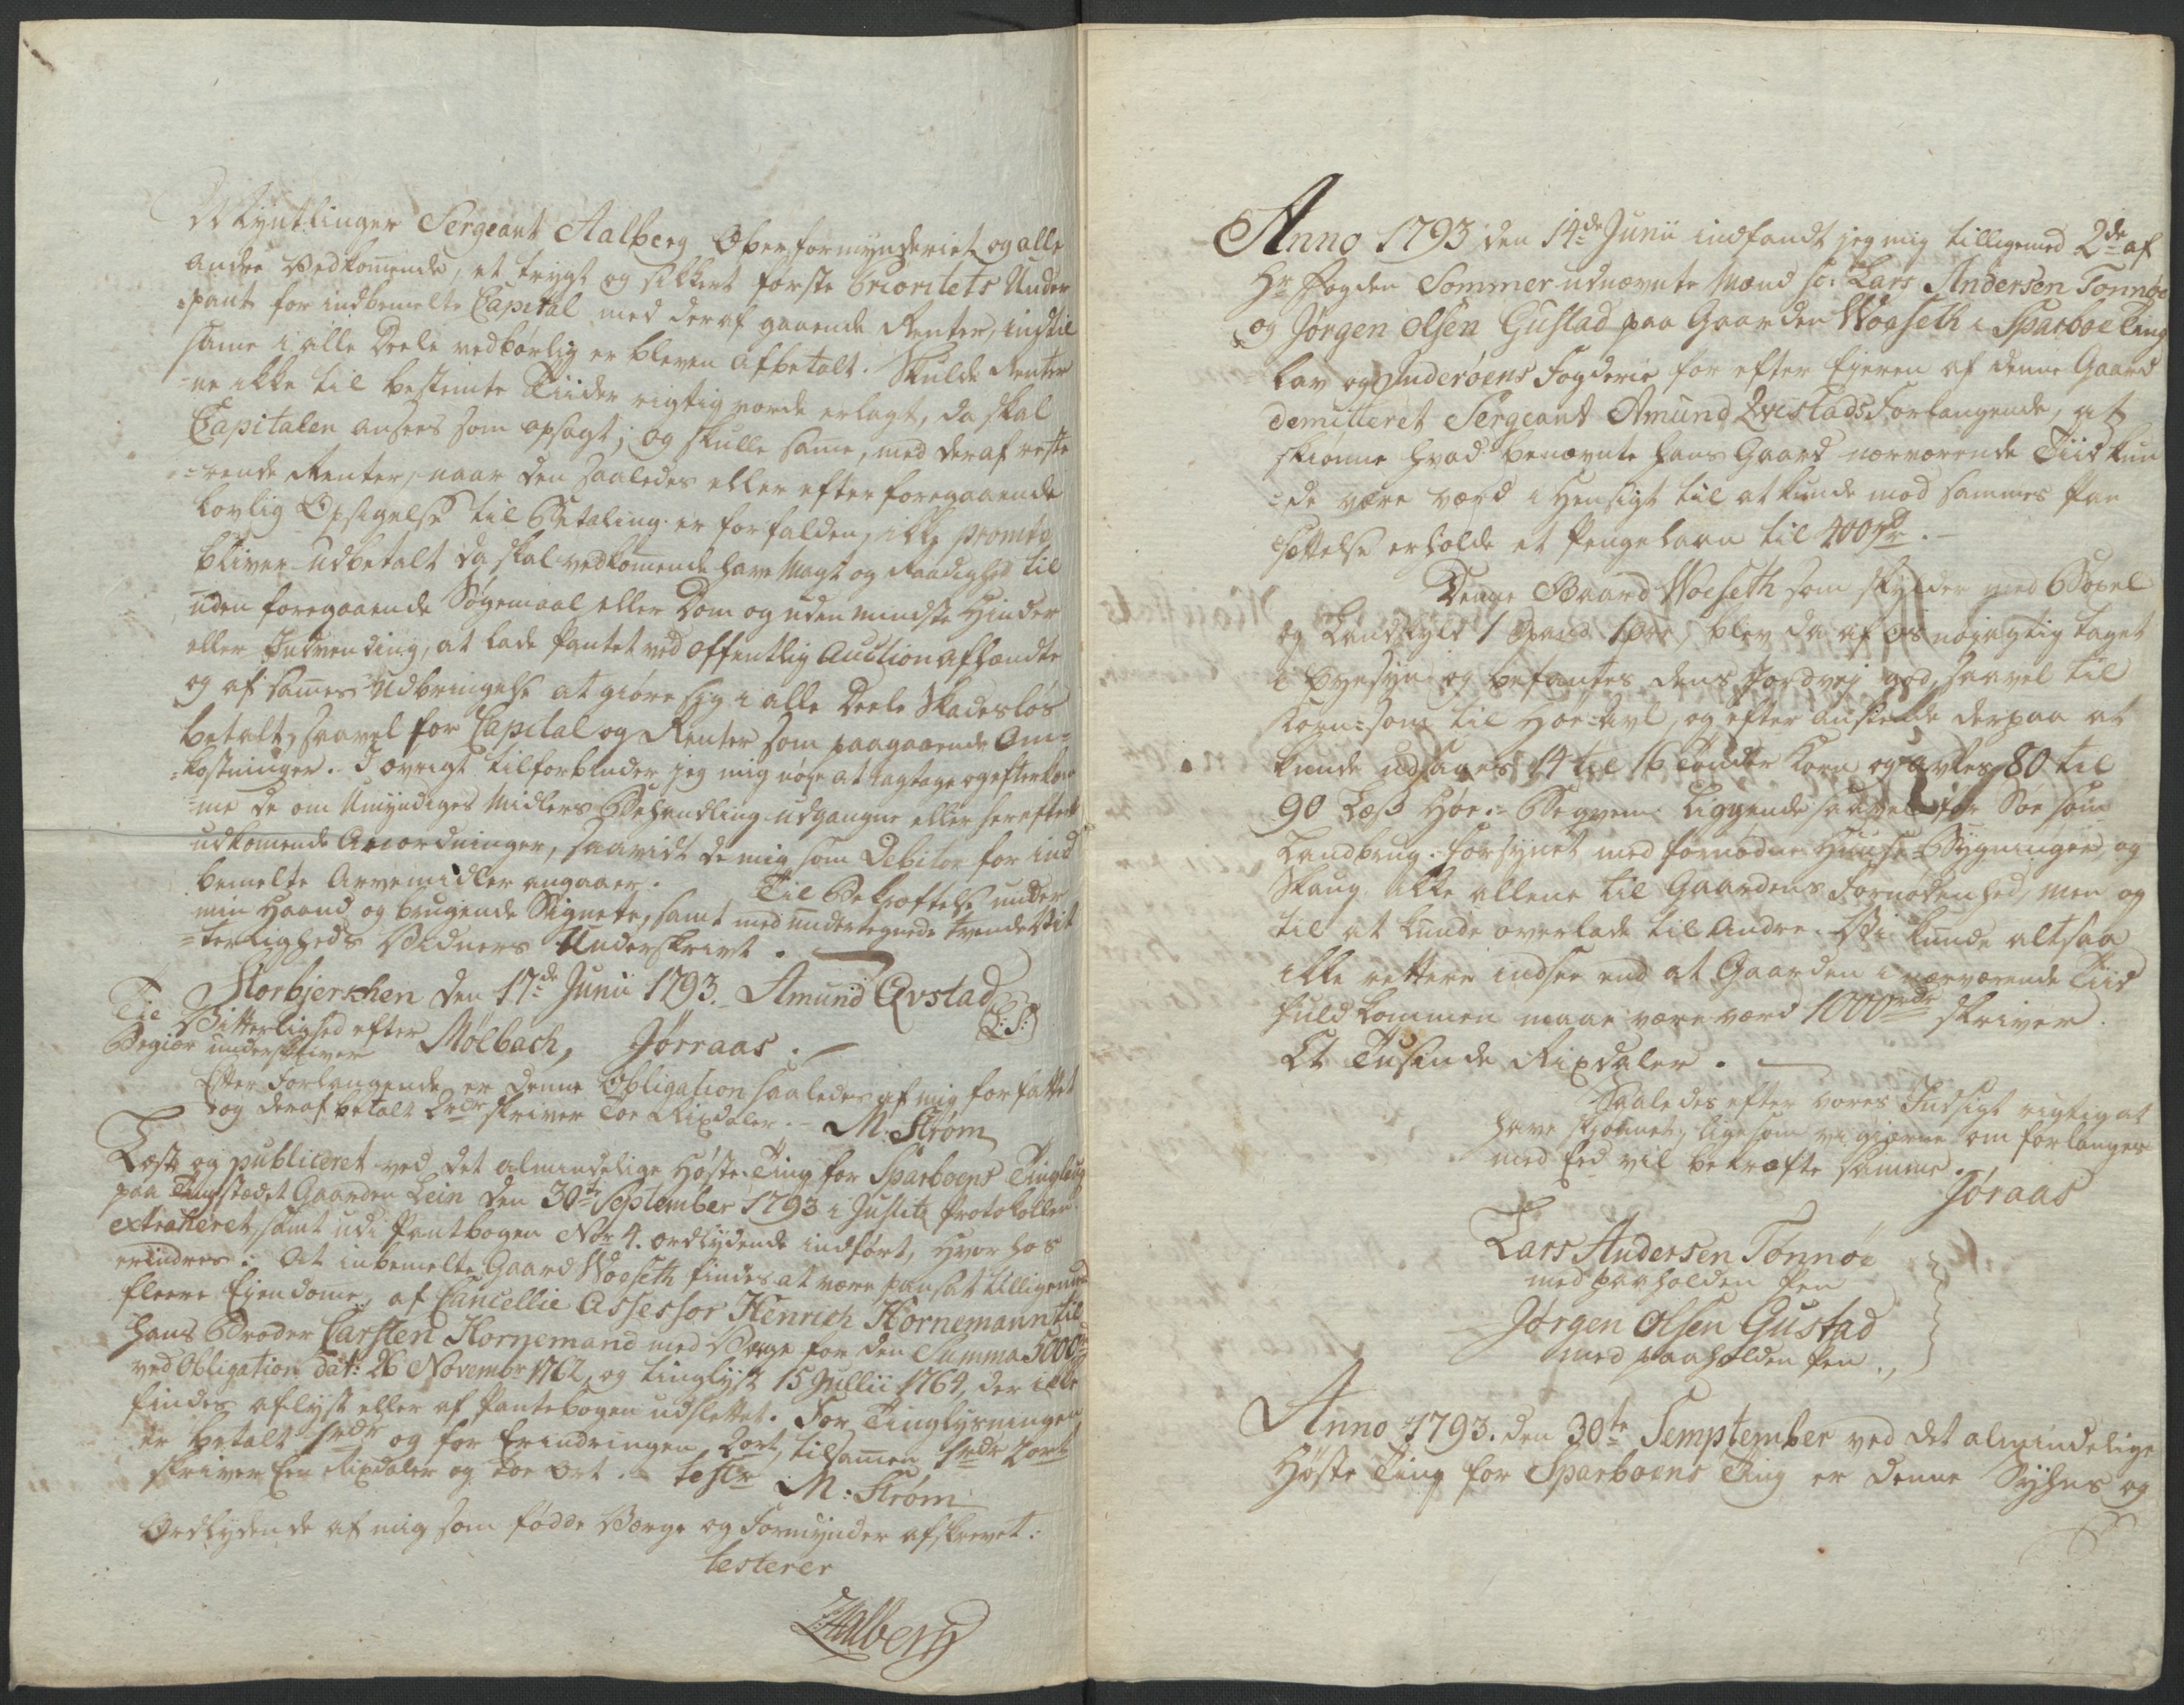 Myntlinger Sergeant Aalberg Overformynderiet og alle
andre Vedkom̄ende, et trygt og sikkert første Prioritets Under
-pant for indbemelte Capital med deraf gaaende Renter, indtil
sam̄e i alle Deele vedbørlig er bleven afbetalt. Skulde Renter
-ne ikke til bestemte Tiider rigtig vorde erlagt, da skal
Capitalen ansees som opsagt; og skulle sam̄e, med deraf reste
-rende Renter, naar den saaledes eller efter foregaaende
lovlig Opsigelse til Betaling er forfalden, ikke promte
bliver udbetalt da skal vedkom̄ende have Magt og Raadighed til
uden foregaaende Søgemaal eller Dom og uden mindste Hinder
eller Indvending, at lade Pantet ved offentlig Auction afhændte
og af sam̄es Udbringelse at giøre sig i alle Deele Skadesløs
betalt, saavel for Capital og Renter som paagaaende Om-
-kostninger. I øvrigt tilforbinder jeg mig nøye at iagtage og efterkom
-me de om Umyndiges Midlers Behandling udgangne eller herefter
udkom̄ende Anordninger, saavidt de mig som Debitor for ind
bemelte Arvemidler angaaer. Til Bekræftelse under
min Haand og brugende Signete, samt med undertegnede tvende Vit
-terligheds Vidners Underskrivt.
Storbjerkhen den 17de Junii 1793. Amund Qvstad
(L:S:)
Til Vitterlighed efter
Begiær underskriver Mølbach, Jørraas.
Efter Forlangende er denne Obligation saaledes af mig forfattet
og deraf betalt 2rdr skriver Toe Rixdaler. - M: Strøm
Læst og publiceret ved det almindelige Høste-Ting for Sparboens Tinglaug
paa Tingstædet Gaarden Lein den 30te September 1793 i Justitz Protokollen
extraheret, samt udi Pantbogen No 4. ordlydende indført, hvorhos
erindres: At inbemelte Gaard Woeseth findes at være pansat tilligemed
fleere Ejendom̄e, af Cancellie Assessor Henrich Hornemann til
hans Broder Carsten Hornemand med Verge for den Summa 5000rd
ved Obligation dat: 26 Novembr 1762, og tinglyst 15 Jullii 1764, der ikke
findes aflyst eller af Pantebogen udslettet. For Tinglysningen
er betalt 1rdr og for Erindringen 2ort, tilsam̄en 1rdr 2ort
skriver Een Rixdaler og toe Ort. - testr M: Strøm
Ordlydende af mig som fødde Verge og Formynder afskrevet:
testerer
Aalberg
Anno 1793 den 14de Junii indfandt jeg mig tilligemed 2de af
Hr Fogden Sommer udnævnte Mænd sc: Lars Andersen Tønnøe
og Jørgen Olsen Gustad paa Gaarden Woeseth i Sparboe Ting
lav og Inderøens Fogderie for efter Ejeren af denne Gaard
demitteret Sergeant Amund Qvistads Forlangende, at
skiønne hvad benævnte hans Gaard nærværende Tiid kun
-de være værd i Hensigt til at kunde mod sammes Pan
sættelse erholde et Pengelaan til 400rd. -
Denne Gaard Woeseth som skylder med Boxel
og Landskyld 1 Spand 1 Øre, blev da af os nøjagtig taget
i Øyesyn og befantes dens Jordvej god, saavel til
Korn- som til Høe-Avl, og efter anseelse derpaa at
kunde udsaaes 14 til 16 Tønder Korn og avles 80 til
90 Læs Høe. - Beqvem liggende saavel for Søe som
Landbrug. Forsynet med fornødne Huuse-Bygninger og
Skaug ikke allene til Gaardens Fornødenhed, men og
til at kunde overlade til Andre. Vi kunde altsaa
ikke rettere indsee end at Gaarden i nærværende Tiid
fuldkommen maae være værd 1000rdr skriver
Et Tusinde Rixdaler.
Saaledes efter vores Indsigt rigtig at
have skiønnet, ligesom vi gierne om forlanges
med Eed vil bekræfte samme.
Jøraas
Lars Andersen Tønnøe
med paaholden Pen
Jørgen Olsen Gustad
med paaholden Pen.,
Anno 1793. den 30te Semptember ved det almindelige
Høste Ting for Sparboens Ting er denne Syhns og